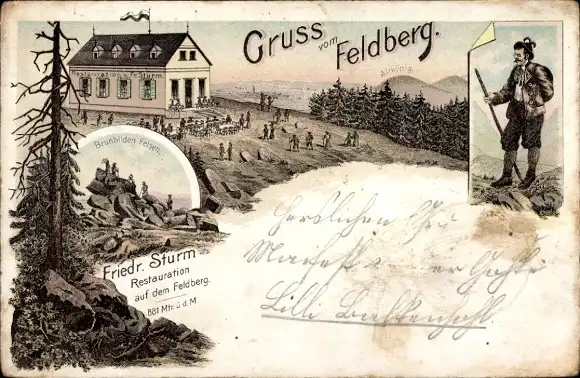 Gruss vom Feldberg.
Restauration v. Fr. Sturm.
Altkönig.
Brunhilden Felsen.
Friedr. Sturm
Restauration
auf dem Feldberg.
881 Mtr. ü. d. M
Herzlichen
Lilli